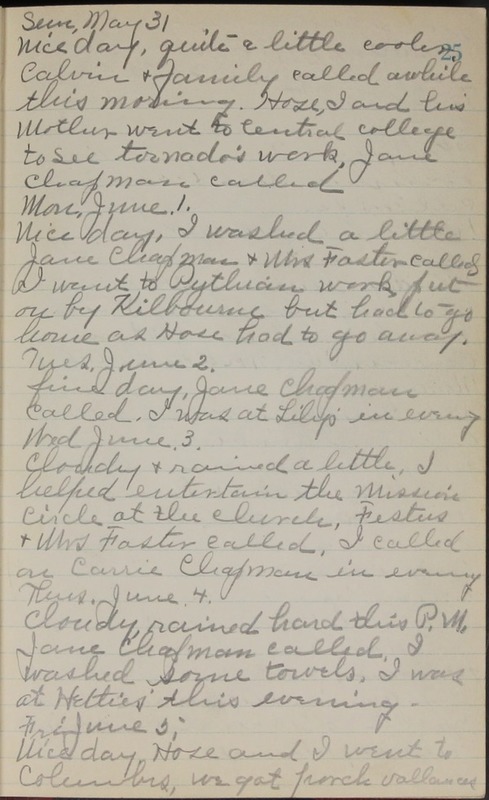 Sun, May 31
Nice day, quite a little cooler
25
Calvin & family called awhile
this morning. Hose, I and his
Mother went to Central college
to see tornado's work, Jane
Chapman called
Mon, June 1.
Nice day, I washed a little
Jane Chapman & Mrs Foster called
I went to Pythian work put
on by Kilbourne but had to go
home as Hose had to go away.
Tues. June 2.
fine day, Jane Chapman
called. I was at Lily's in evening
Wed June 3.
Cloudy & rained a little, I
helped entertain the Mission
Circle at the church, Festus
& Mrs Foster called, I called
on Carrie Chapman in evening
Thurs. June 4.
Cloudy, rained hard this P.M.
Jane Chapman called. I
washed some towels. I was
at Netties this evening.
Fri June 5,
Nice day Hose and I went to
Columbus, we got porch vallances